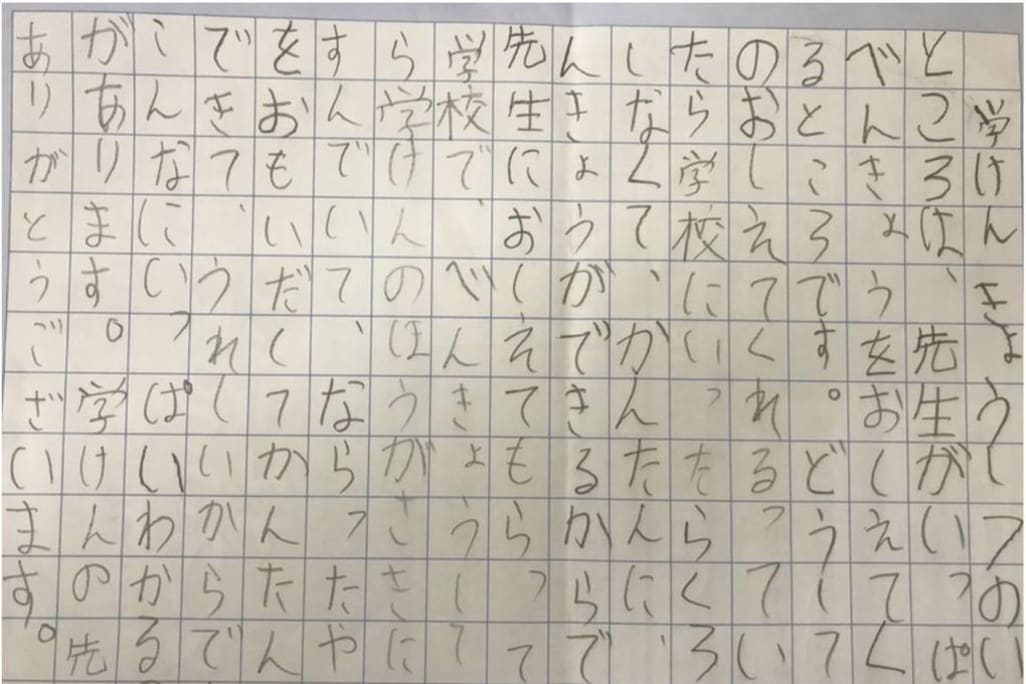 学けんきょうしつのい
ところは、先生がいっぱ
べんきょうをおしえてく
るところです。どうして
のおしえてくれるってい
たら学校にいったらくろ
しなくて、かんたんに、
んきょうができるからで
先生におしえてもらって
学校で、べんきょうして
ら学けんのほうがさきに
すんでいて、ならったや
をおもいだくてかんたん
できて、うれしいからで
こんなにいっぱいわかる
があります。学けんの先
ありがとうございます。